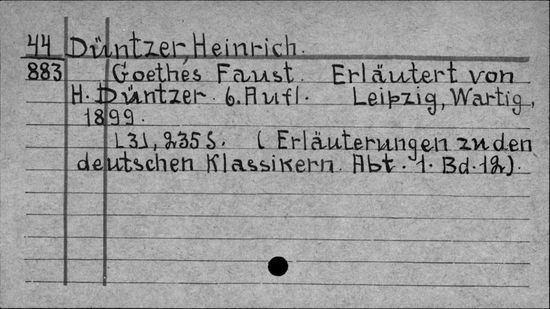 44 Düntzer, Heinrich.
883 Goethes Faust. Erläutert von
H. Düntzer. 6. Aufl. Leipzig, Wartig,
1899.
L3J, 235 S. ( Erläuterungen zu den
deutschen Klassikern. Abt. 1. Bd. 12).